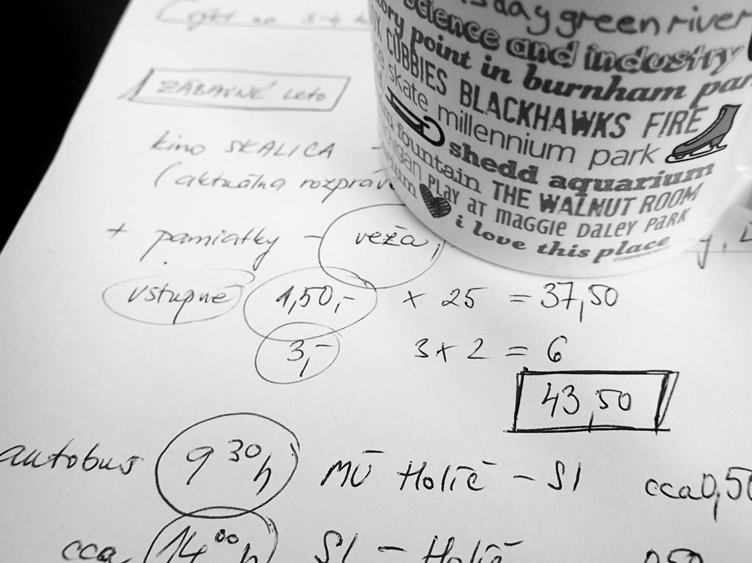 ZÁBAVNÉ leto
kino SKALICA -
(aktuálna
+ pamiatky - veža,
vstupné 1,50,- × 25 = 37,50
3,- 3 × 2 = 6
43,50
autobus 9 30 h MÚ Holíč - SI cca 0,50
cca 14 00 h SI - Holíč 0,50
day green river
science and industry
point in burnham
CUBBIES BLACKHAWKS FIRE
skate millennium park
fountain shedd aquarium
PLAY AT THE WALNUT ROOM
MAGGIE DALEY PARK
i love this place